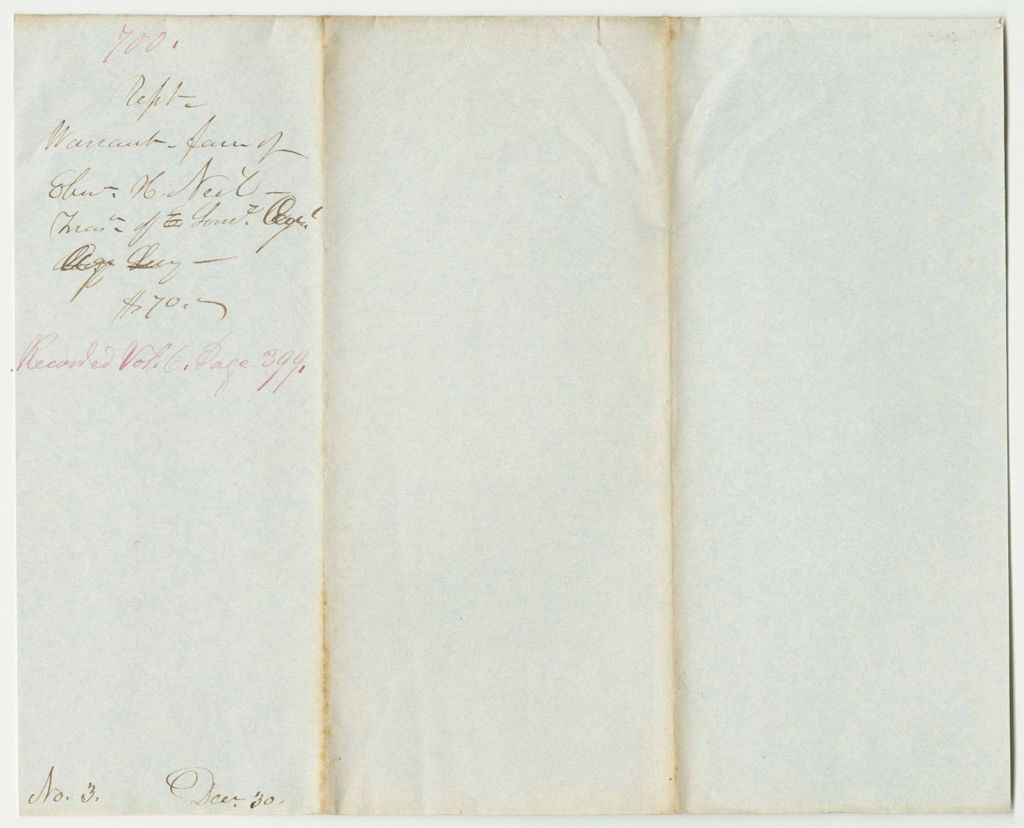 700.
Rept-
Warrant - favr of
Eben- H. Neil -
Treas- of E Somt. Agl.
$70.-
Recorded Vol. 6. Page 399.
No. 3. Decr 30.